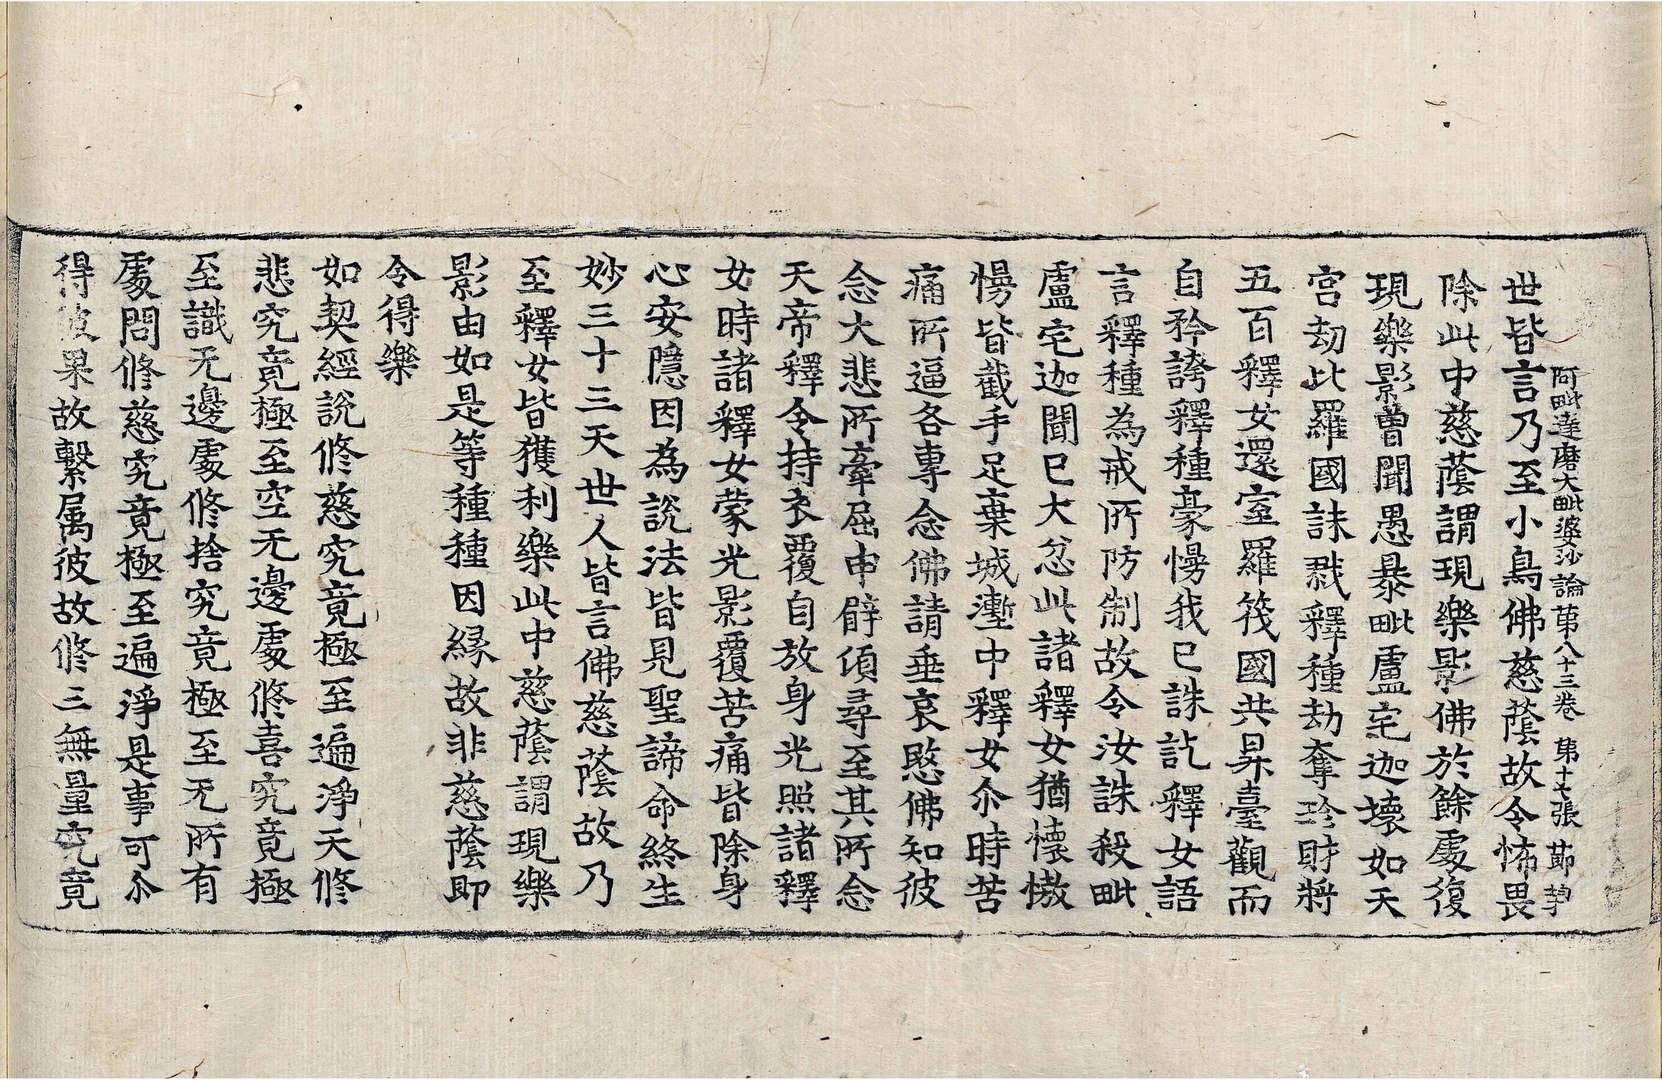 阿毗達磨大毗婆沙論第八十三卷　第十七張　節
世皆言乃至小鳥佛慈蔭故令怖畏
除此中慈蔭謂現樂影佛於餘處復
現樂影曽聞愚暴毗盧宅迦壞如天
宮劫比羅國誅戮釋種劫奪珍財將
五百釋女還室羅筏國共昇臺觀而
自矜誇釋種豪慢我已誅訖釋女語
言釋種為戒所防制故令汝誅殺毗
盧宅迦聞已大忿此諸釋女猶懷憿
慢皆截手足棄城塹中釋女尒時苦
痛所逼各專念佛請垂哀愍佛知彼
念大悲所牽屈申臂頃尋至其所念
天帝釋令持衣覆自放身光照諸釋
女時諸釋女蒙光影覆苦痛皆除身
心安隱因為說法皆見聖諦命終生
妙三十三天世人皆言佛慈蔭故乃
至釋女皆獲利樂此中慈蔭謂現樂
影由如是等種種因縁故非慈蔭即
令得樂
如契經說修慈究竟極至遍淨天修
悲究竟極至空无邊處修喜究竟極
至識无邊處修捨究竟極至无所有
處問修慈究竟極至遍淨是事可尒
得彼果故繫属彼故修三無量究竟